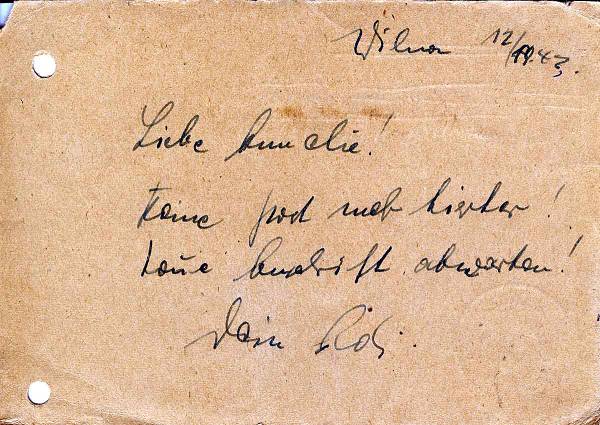 Wilna
Liebe Annelie!
Keine Post mehr hierher!
Neue Anschrift abwarten!
Dein